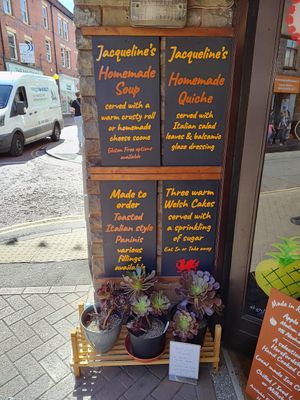 Jacqueline's
Homemade
Soup
served with a
warm crusty roll
or homemade
cheese scones
Gluten Free options
available
Jacqueline's
Homemade
Quiche
served with
Italian salad
leaves & balsamic
glass dressing
Made to
order
Toasted
Italian style
Paninis
various
fillings
available
Three warm
Welsh Cakes
served with
a sprinkling
of sugar
Eat In or Take away
Made in